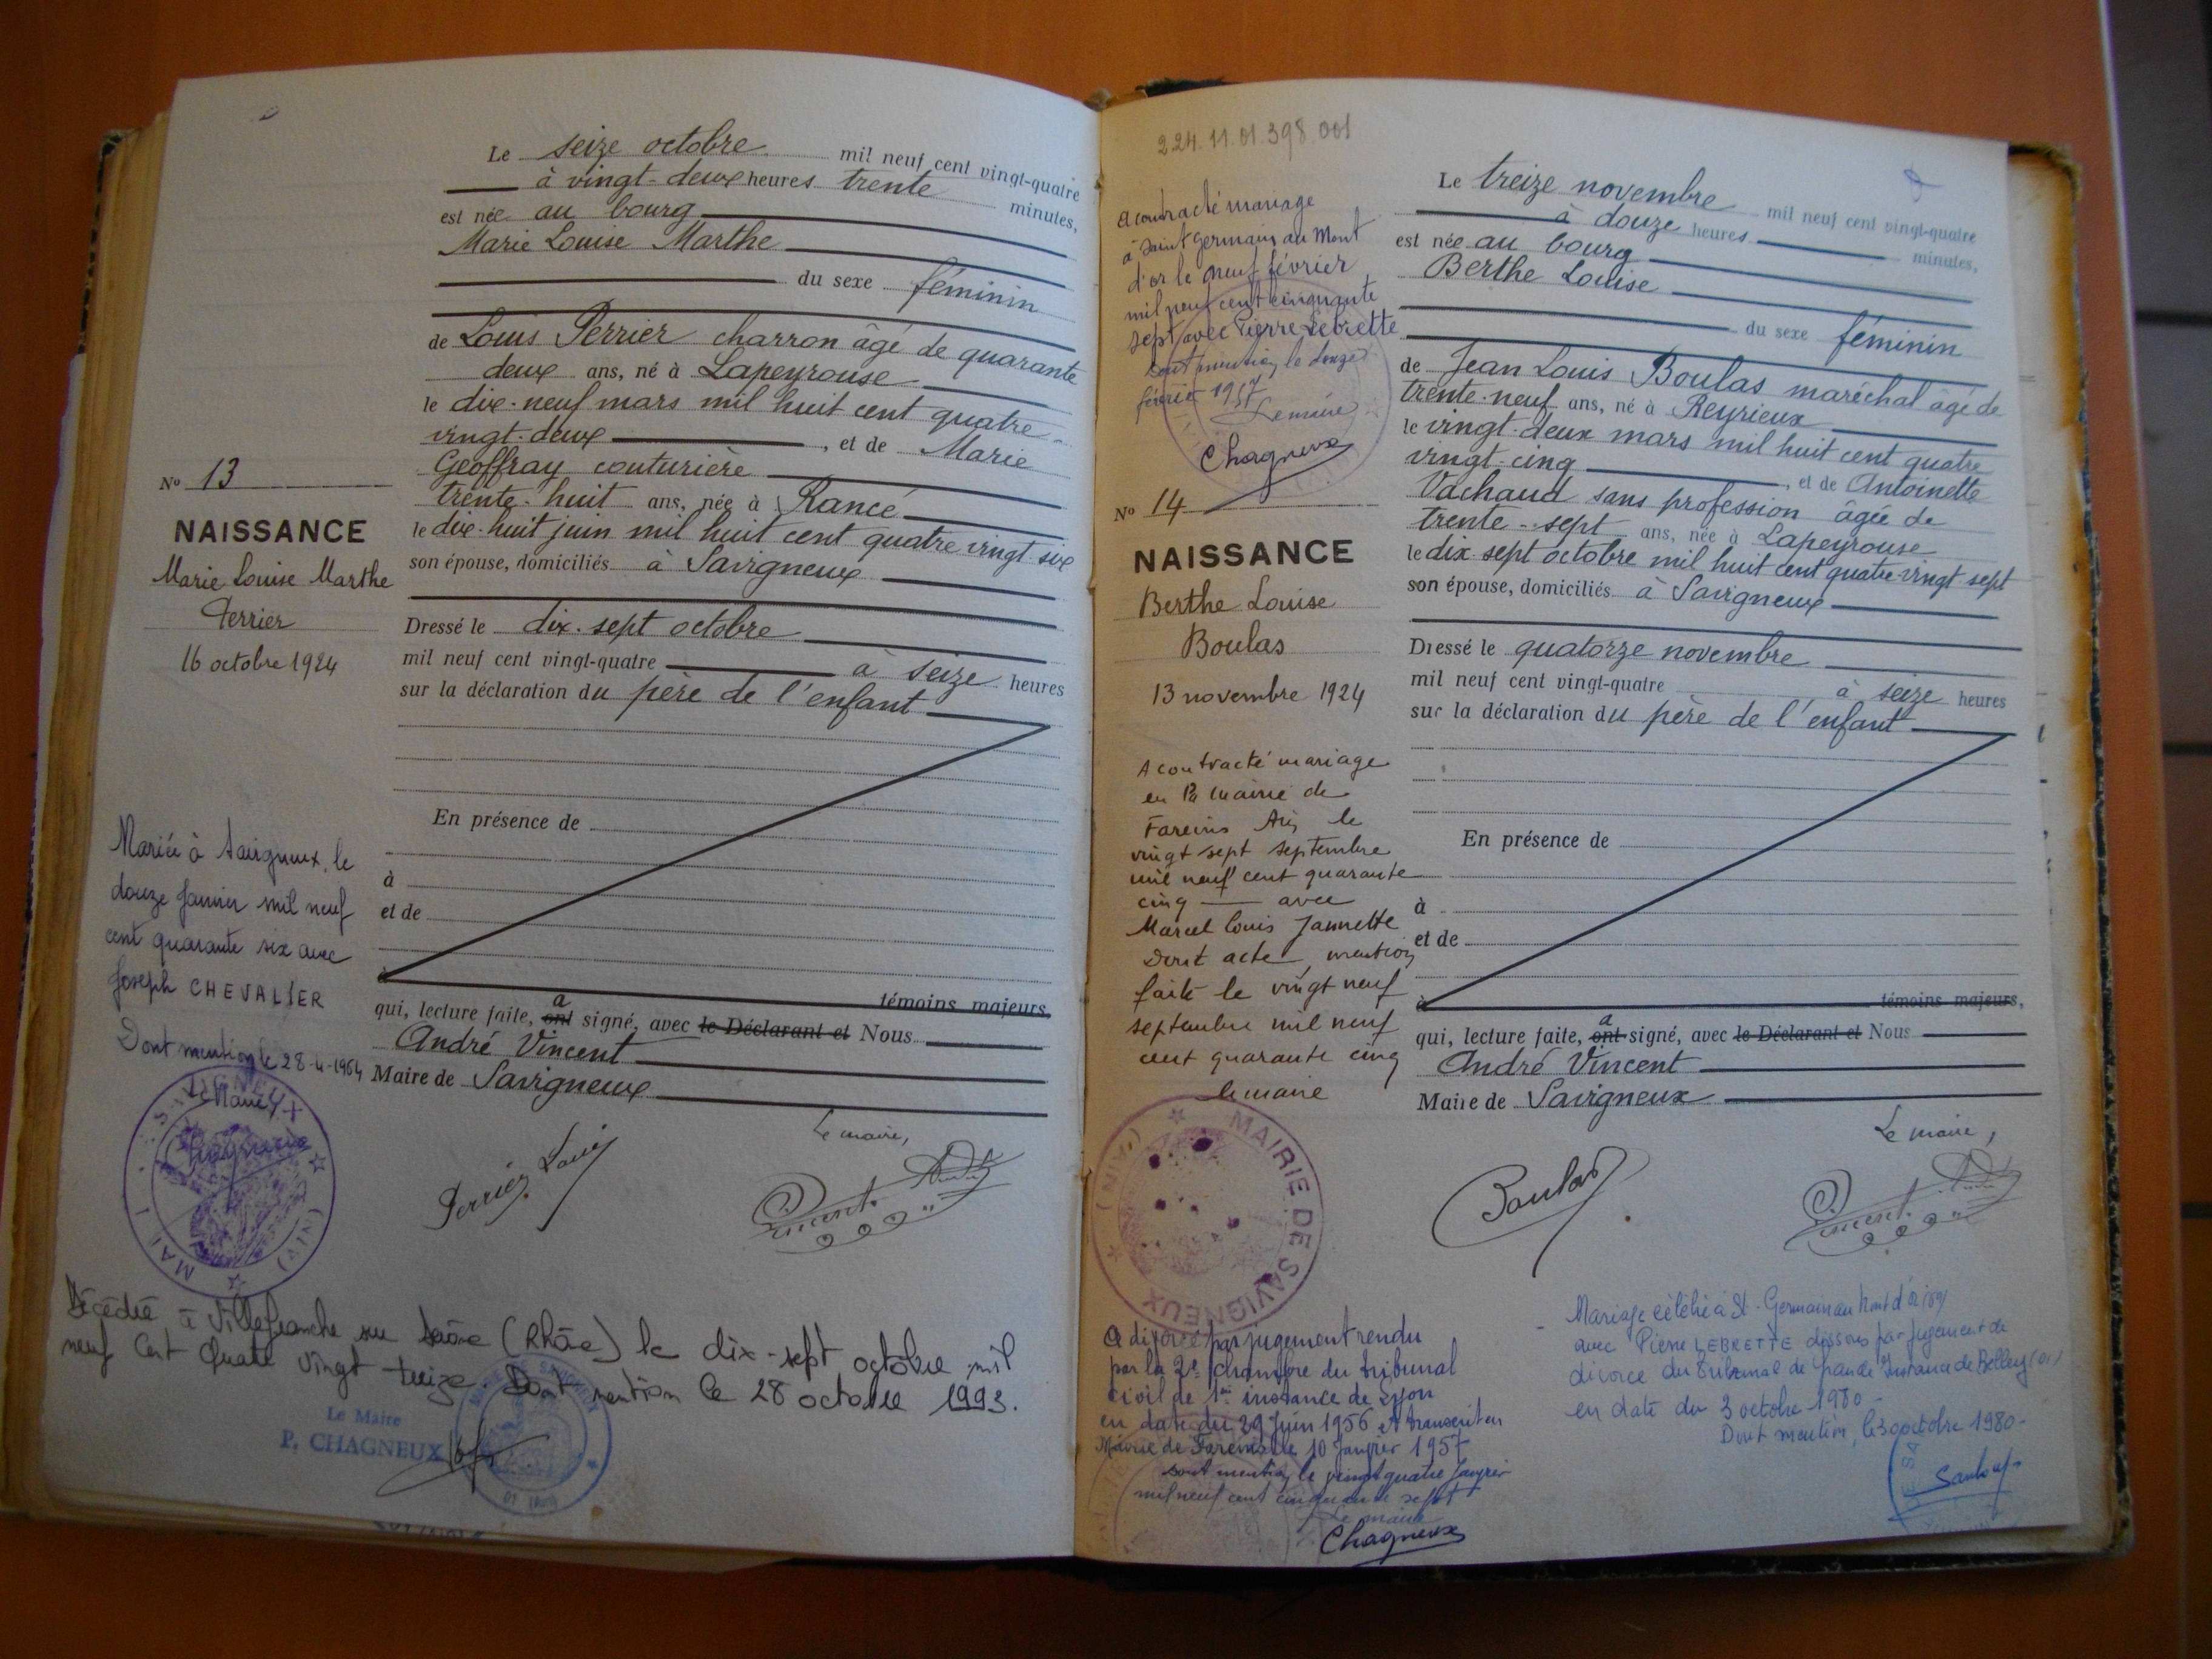 Le seize octobre mil neuf cent vingt-quatre
à vingt-deux heures trente minutes,
est née au bourg
Marie Louise Marthe
du sexe féminin
de Louis Perrier charron âgé de quarante
deux ans, né à Lapeyrouse
le dix-neuf mars mil huit cent quatre-
vingt-deux, et de Marie
Geoffray couturière
trente-huit ans, née à Rancé
le dix-huit juin mil huit cent quatre vingt six
son épouse, domiciliés à Savigneux
Dressé le dix-sept octobre
mil neuf cent vingt-quatre à seize heures
sur la déclaration du père de l'enfant
En présence de
à
et de
à
témoins majeurs,
qui, lecture faite, ont a signé, avec le Déclarant et Nous
André Vincent
Maire de Savigneux
Le maire,
Perrier Louis
Vincent
No 13
NAISSANCE
Marie Louise Marthe
Perrier
16 octobre 1924
Mariée à Savigneux, le
douze Janvier mil neuf
cent quarante six avec
Joseph CHEVALIER
Dont mention le 28-4-1964
Le Maire
Décédée à Villefranche sur Saône (Rhône) le dix-sept octobre mil
neuf cent quatre vingt treize Dont mention le 28 octobre 1993.
Le Maire
P. CHAGNEUX
224.11.01.398.001
A contracté mariage
à Saint Germain au Mont
d'or le neuf février
mil neuf cent cinquante
sept avec Pierre Lebrette
Dont mention le douze
février 1957
Le maire
Chagneux
No 14
NAISSANCE
Berthe Louise
Boulas
13 novembre 1924
A contracté mariage
en la mairie de
Fareins Ain le
vingt sept septembre
mil neuf cent quarante
cinq avec
Marcel Louis Jannette
Dont acte, mention
faite le vingt neuf
septembre mil neuf
cent quarante cinq
Le maire
MAIRIE DE SAVIGNEUX
A divorcé par jugement rendu
par la 2e chambre du tribunal
civil de 1ère instance de Lyon
en date du 29 Juin 1956 et transcrit en
Mairie de Fareins le 10 Janvier 1957
Dont mention le vingt quatre Janvier
mil neuf cent cinquante sept
Le maire
Chagneux
Le treize novembre mil neuf cent vingt-quatre
à douze heures minutes,
est née au bourg
Berthe Louise
du sexe féminin
de Jean Louis Boulas maréchal âgé de
trente-neuf ans, né à Reyrieux
le vingt-deux mars mil huit cent quatre
vingt-cinq, et de Antoinette
Vachaud sans profession âgée de
trente-sept ans, née à Lapeyrouse
le dix-sept octobre mil huit cent quatre-vingt-sept
son épouse, domiciliés à Savigneux
Dressé le quatorze novembre
mil neuf cent vingt-quatre à seize heures
sur la déclaration du père de l'enfant
En présence de
à
et de
à
témoins majeurs,
qui, lecture faite, ont a signé, avec le Déclarant et Nous
André Vincent
Maire de Savigneux
Le maire,
Boulas
Vincent
- Mariage célébré à St-Germain au Mont d'or (69)
avec Pierre LEBRETTE dissous par jugement de
divorce du Tribunal de Grande Instance de Belley (01)
en date du 3 octobre 1980 -
Dont mention, le 30 octobre 1980 -